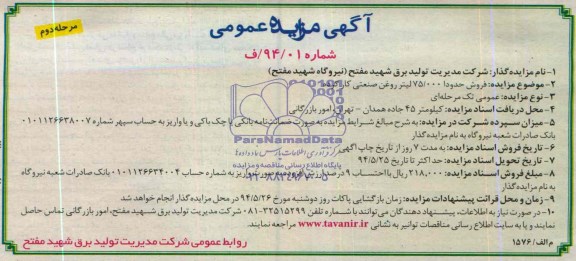 آگهی مزایده عمومی
مرحله دوم
شماره ۹۴/۰۱/ف
۱-نام مزایده‌گذار: شرکت مدیریت تولید برق شهید مفتح (نیروگاه شهید مفتح)
۲-موضوع مزایده: فروش حدودا ۷۵/۰۰۰ لیتر روغن صنعتی کارکرده
۳-نوع مزایده: عمومی تک مرحله‌ای
۴-محل دریافت اسناد مزایده: کیلومتر ۴۵ جاده همدان - تهران، امور بازرگانی
۵-میزان سپرده شرکت در مزایده: به شرح مبالغ شرایط مزایده به صورت ضمانت‌نامه بانکی یا چک بانکی و یا واریز به حساب سپهر شماره ۰۱۰۱۱۲۶۶۳۸۰۰۷
بانک صادرات شعبه نیروگاه به نام مزایده‌گذار
۶-تاریخ فروش اسناد مزایده: به مدت ۷ روز از تاریخ چاپ آگهی
۷-تاریخ تحویل اسناد مزایده: حداکثر تا تاریخ ۹۴/۵/۲۵
۸-مبلغ فروش اسناد مزایده: ۲۱۸,۰۰۰ ریال با احتساب ۹ درصد ارزش افزوده به صورت واریز به شماره حساب ۰۱۰۱۱۴۶۶۳۴۰۰۴ بانک صادرات شعبه نیروگاه
به نام مزایده‌گذار
۹-زمان و محل قرائت پیشنهادات مزایده: زمان بازگشایی پاکات روز دوشنبه مورخ ۹۴/۵/۲۶ در محل مزایده‌گذار انجام خواهد شد
۱۰-در صورت نیاز به اطلاعات، پیشنهاد دهندگان می‌توانند با شماره تلفن ۳۳۵۱۵۲۹۹-۰۸۱ شرکت مدیریت تولید برق شهید مفتح، امور بازرگانی تماس حاصل
نمایند و یا به سایت اطلاع رسانی مناقصات توانیر به نشانی www.tavanir.ir مراجعه نمایند.
م الف/۱۵۷۶
روابط عمومی شرکت مدیریت تولید برق شهید مفتح
ParsNamadData
پایگاه اطلاع رسانی مناقصه و مزایده